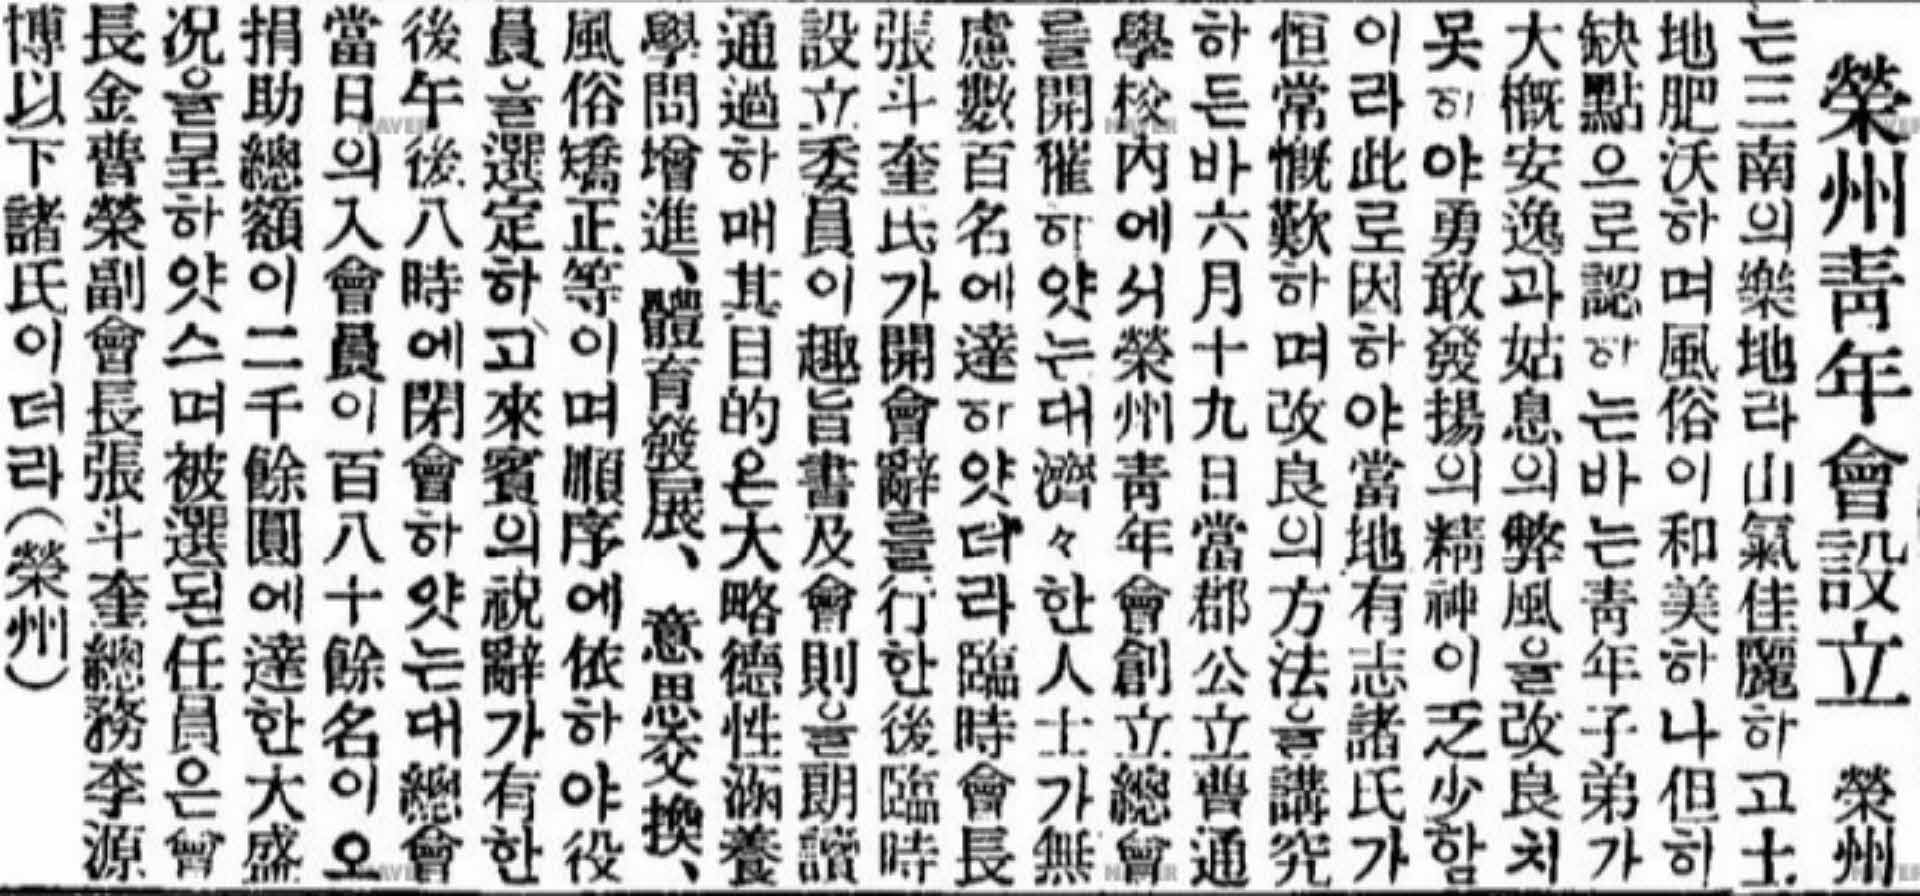 榮州靑年會設立 榮州
는三南의樂地라山氣佳麗하고土
地肥沃하며風俗이和美하나但히
缺點으로認하는바는靑年子弟가
大槪安逸과姑息의弊風을改良치
못히야勇敢發揚의精神이乏少함
이라此로因하야當地有志諸氏가
恒常慨歎하며改良의方法을講究
하든바六月十九日當郡公立普通
學校內에서榮州靑年會創立總會
를開催하얏는대濟々한人士가無
慮數百名에達하얏더라臨時會長
張斗奎氏가開會辭를行한後臨時
設立委員이趣旨書及會則을朗讀
通過하매其目的은大略德性涵養
學問增進、體育發展、意思交換、
風俗矯正等이며順序에依하야役
員을選定하고來賓의祝辭가有한
後午後八時에閉會하얏는대總會
當日의入會員이百八十餘名이오
捐助總額이二千餘圓에達한大盛
况을呈하얏스며被選된任員은會
長金普榮副會長張斗奎總務李源
博以下諸氏이더라(榮州)